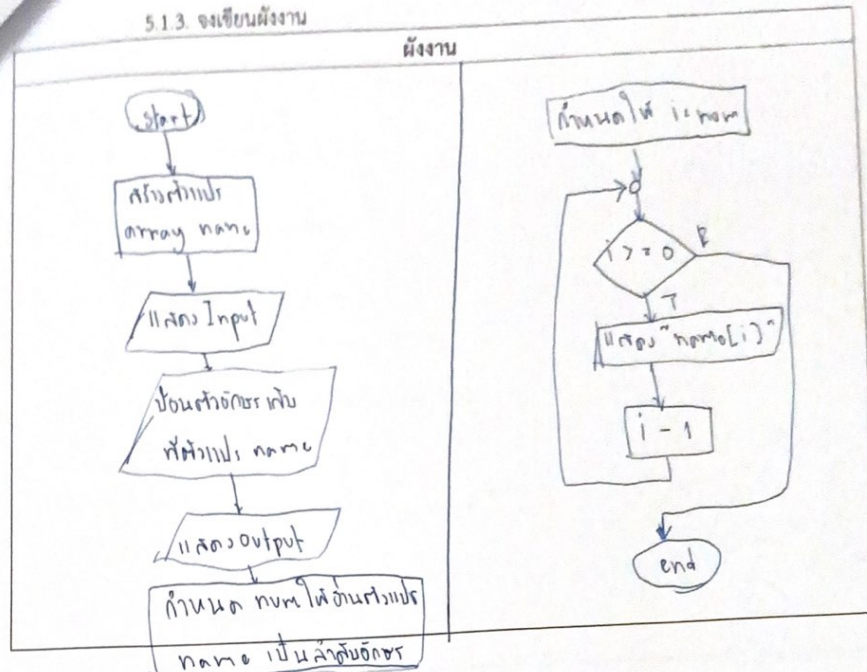 5.1.3. จงเขียนผังงาน
ผังงาน
Start
สร้างตัวแปร
array name
แสดง Input
ป้อนตัวอักษรเก็บ
ที่ตัวแปร name
แสดง Output
กำหนด num ให้อ่านตัวแปร
name เป็นลำดับอักษร
กำหนดให้ i = num
i >= 0
F
T
แสดง "name[i]"
i - 1
end